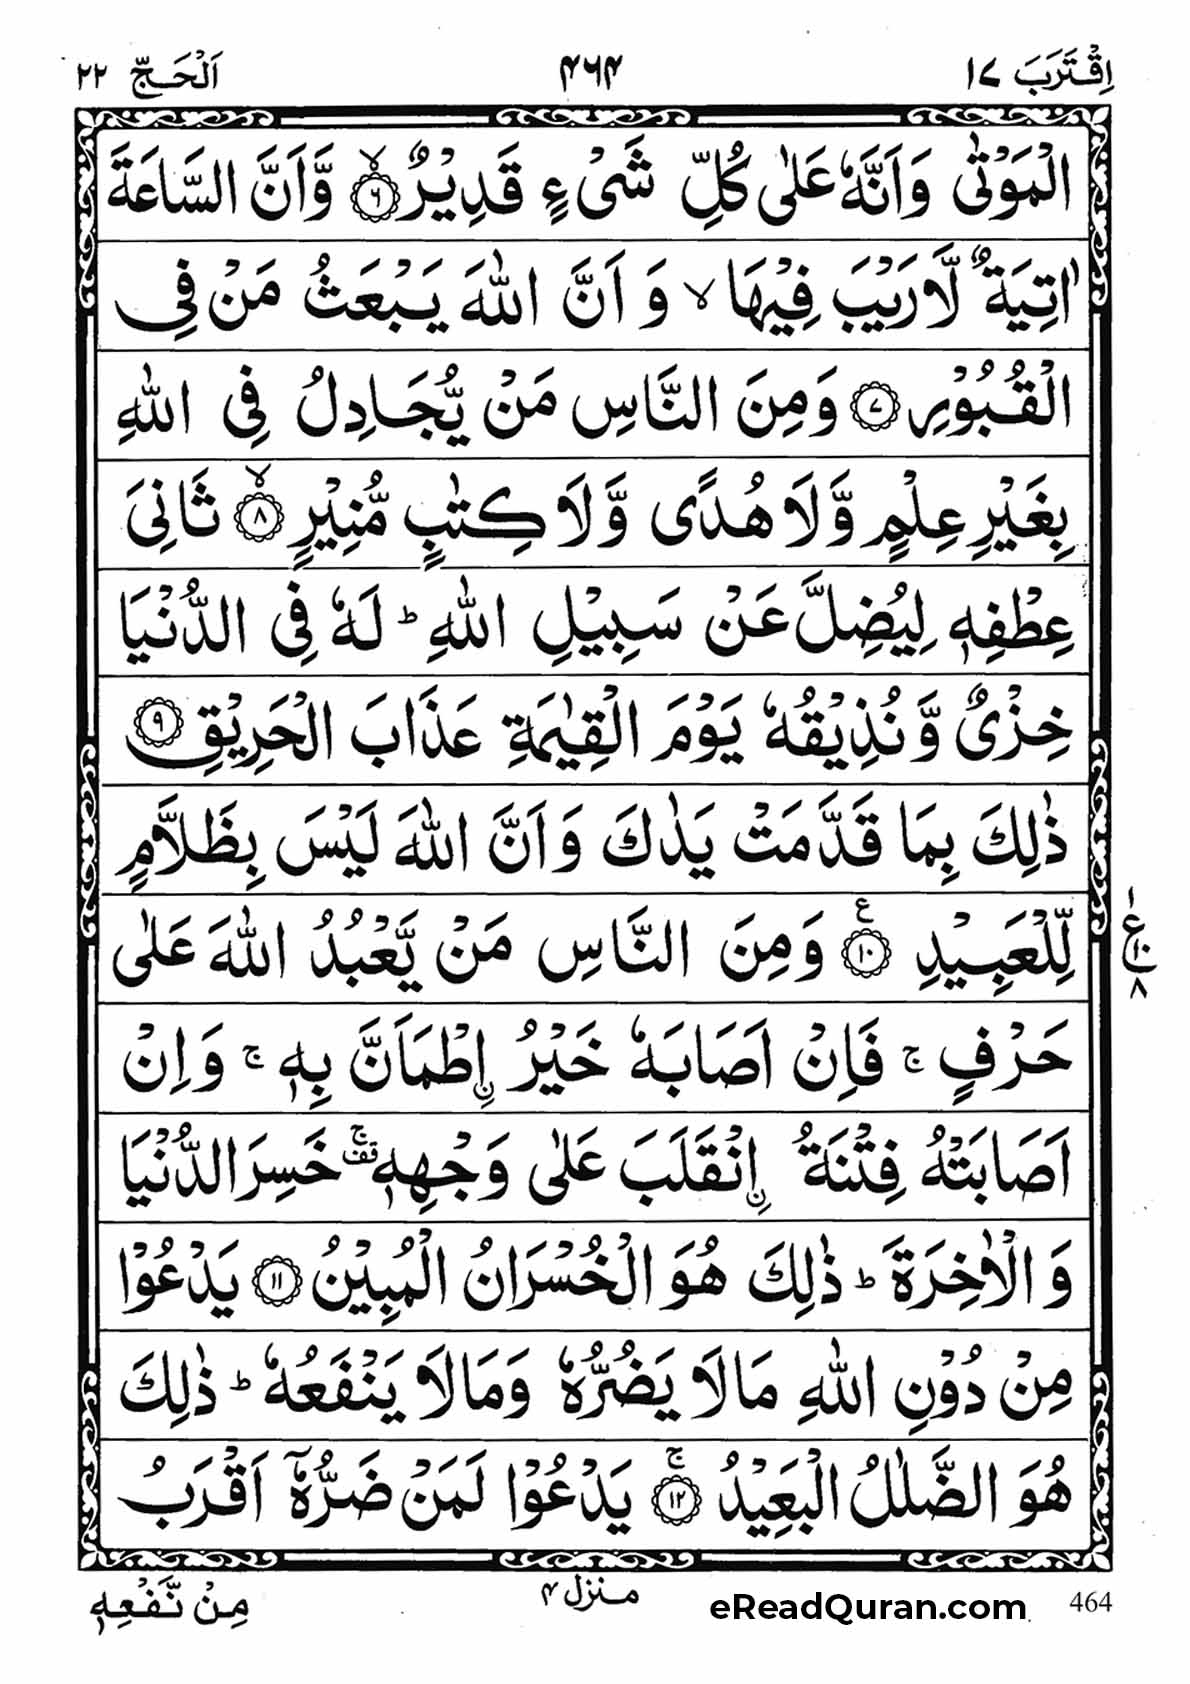 اِقْتَرَبَ ١٧
٤٦٤
اَلْحَجّ ٢٢
الْمَوْتٰى وَاَنَّهٗ عَلٰى كُلِّ شَىْءٍ قَدِيْرٌۙ ۝٦ وَّاَنَّ السَّاعَةَ
اٰتِيَةٌ لَّارَيْبَ فِيْهَاۙ وَ اَنَّ اللّٰهَ يَبْعَثُ مَنْ فِى
الْقُبُوْرِ ۝٧ وَمِنَ النَّاسِ مَنْ يُّجَادِلُ فِى اللّٰهِ
بِغَيْرِ عِلْمٍ وَّلَا هُدًى وَّلَا كِتٰبٍ مُّنِيْرٍۙ ۝٨ ثَانِىَ
عِطْفِهٖ لِيُضِلَّ عَنْ سَبِيْلِ اللّٰهِؕ لَهٗ فِى الدُّنْيَا
خِزْىٌ وَّنُذِيْقُهٗ يَوْمَ الْقِيٰمَةِ عَذَابَ الْحَرِيْقِ ۝٩
ذٰلِكَ بِمَا قَدَّمَتْ يَدٰكَ وَاَنَّ اللّٰهَ لَيْسَ بِظَلَّامٍ
لِّلْعَبِيْدِ ۝١٠ ع وَمِنَ النَّاسِ مَنْ يَّعْبُدُ اللّٰهَ عَلٰى
١ ع ١٠ ٨
حَرْفٍۚ فَاِنْ اَصَابَهٗ خَيْرُ ۨاِطْمَاَنَّ بِهٖۚ وَاِنْ
اَصَابَتْهُ فِتْنَةُ ۨاِنْقَلَبَ عَلٰى وَجْهِهٖۚقف خَسِرَ الدُّنْيَا
وَالْاٰخِرَةَؕ ذٰلِكَ هُوَ الْخُسْرَانُ الْمُبِيْنُ ۝١١ يَدْعُوْا
مِنْ دُوْنِ اللّٰهِ مَالَا يَضُرُّهٗ وَمَالَا يَنْفَعُهٗؕ ذٰلِكَ
هُوَ الضَّلٰلُ الْبَعِيْدُۚ ۝١٢ يَدْعُوْا لَمَنْ ضَرُّهٗۤ اَقْرَبُ
464
eReadQuran.com
منزل ٤
مِنْ نَّفْعِهٖ